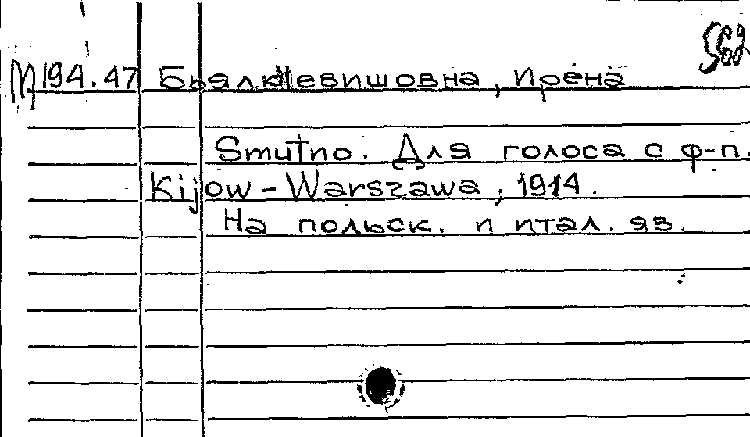 562
М194.47 Бьялкевишовна, Ирена
Smutno. Для голоса с ф-п.
Kijow-Warszawa, 1914.
На польск. и итал. яз.